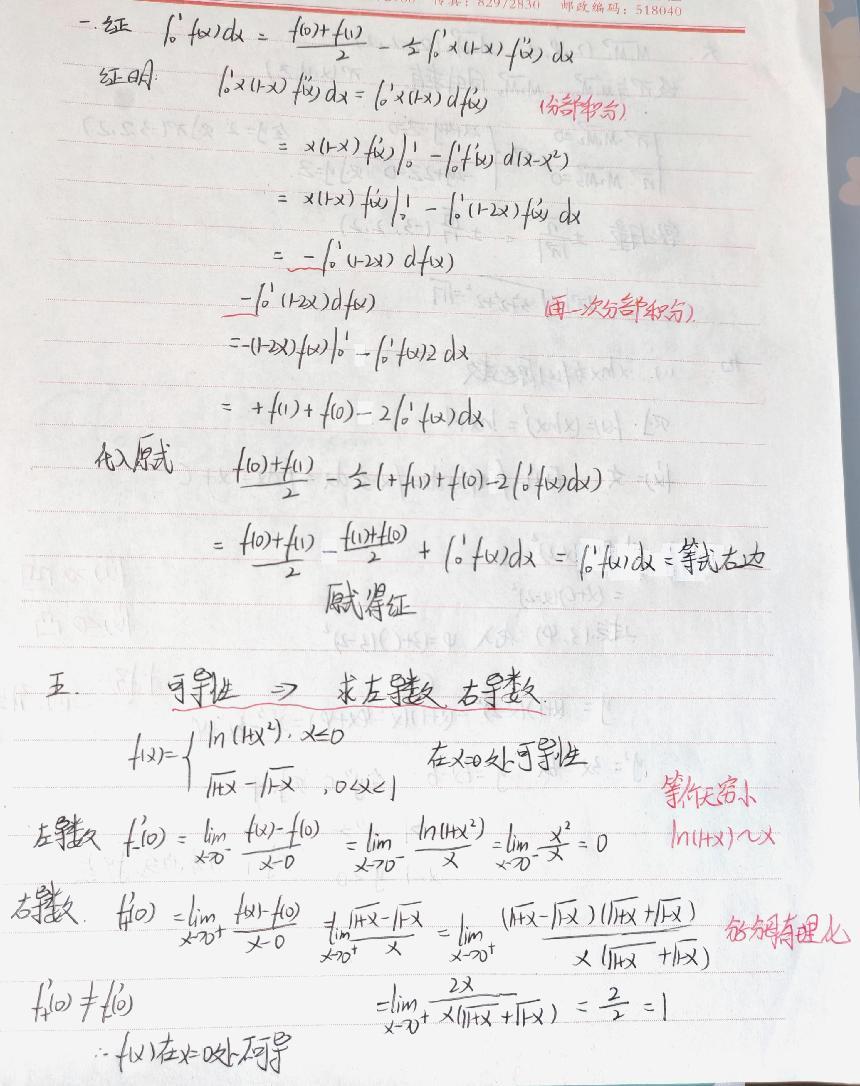 传真：82972830 邮政编码：518040
一.证 ∫₀¹ f(x)dx = (f(0)+f(1))/2 - ½∫₀¹ x(1-x) f''(x) dx
证明: ∫₀¹ x(1-x) f''(x) dx = ∫₀¹ x(1-x) df'(x) (分部积分)
= x(1-x) f'(x)|₀¹ - ∫₀¹ f'(x) d(x-x²)
= x(1-x) f'(x)|₀¹ - ∫₀¹ (1-2x) f'(x) dx
= -∫₀¹ (1-2x) df(x)
-∫₀¹ (1-2x)df(x) (再一次分部积分)
=-(1-2x)f(x)|₀¹ - ∫₀¹ f(x)2 dx
= +f(1)+f(0)-2∫₀¹ f(x)dx
代入原式 (f(0)+f(1))/2 - ½(+f(1)+f(0)-2∫₀¹ f(x)dx)
= (f(0)+f(1))/2 - (f(1)+f(0))/2 + ∫₀¹ f(x)dx = ∫₀¹ f(x)dx = 等式右边
原式得证
五. 可导性 ⇒ 求左导数 右导数.
f(x)={ ln(1+x²), x≤0
√1+x - √1-x , 0<x<1 在x=0处可导性
等价无穷小
左导数 f'₋(0) = lim x→0⁻ (f(x)-f(0))/(x-0) = lim x→0⁻ ln(1+x²)/x = lim x→0⁻ x²/x = 0 ln(1+x)~x
右导数. f'₊(0) = lim x→0⁺ (f(x)-f(0))/(x-0) lim x→0⁺ (√1+x - √1-x)/x = lim x→0⁺ (√1+x - √1-x)(√1+x + √1-x)/(x(√1+x + √1-x)) 分子分母有理化
f'₊(0) ≠ f'₋(0) = lim x→0⁺ 2x/(x(√1+x + √1-x)) = 2/2 = 1
∴ f(x)在x=0处不可导